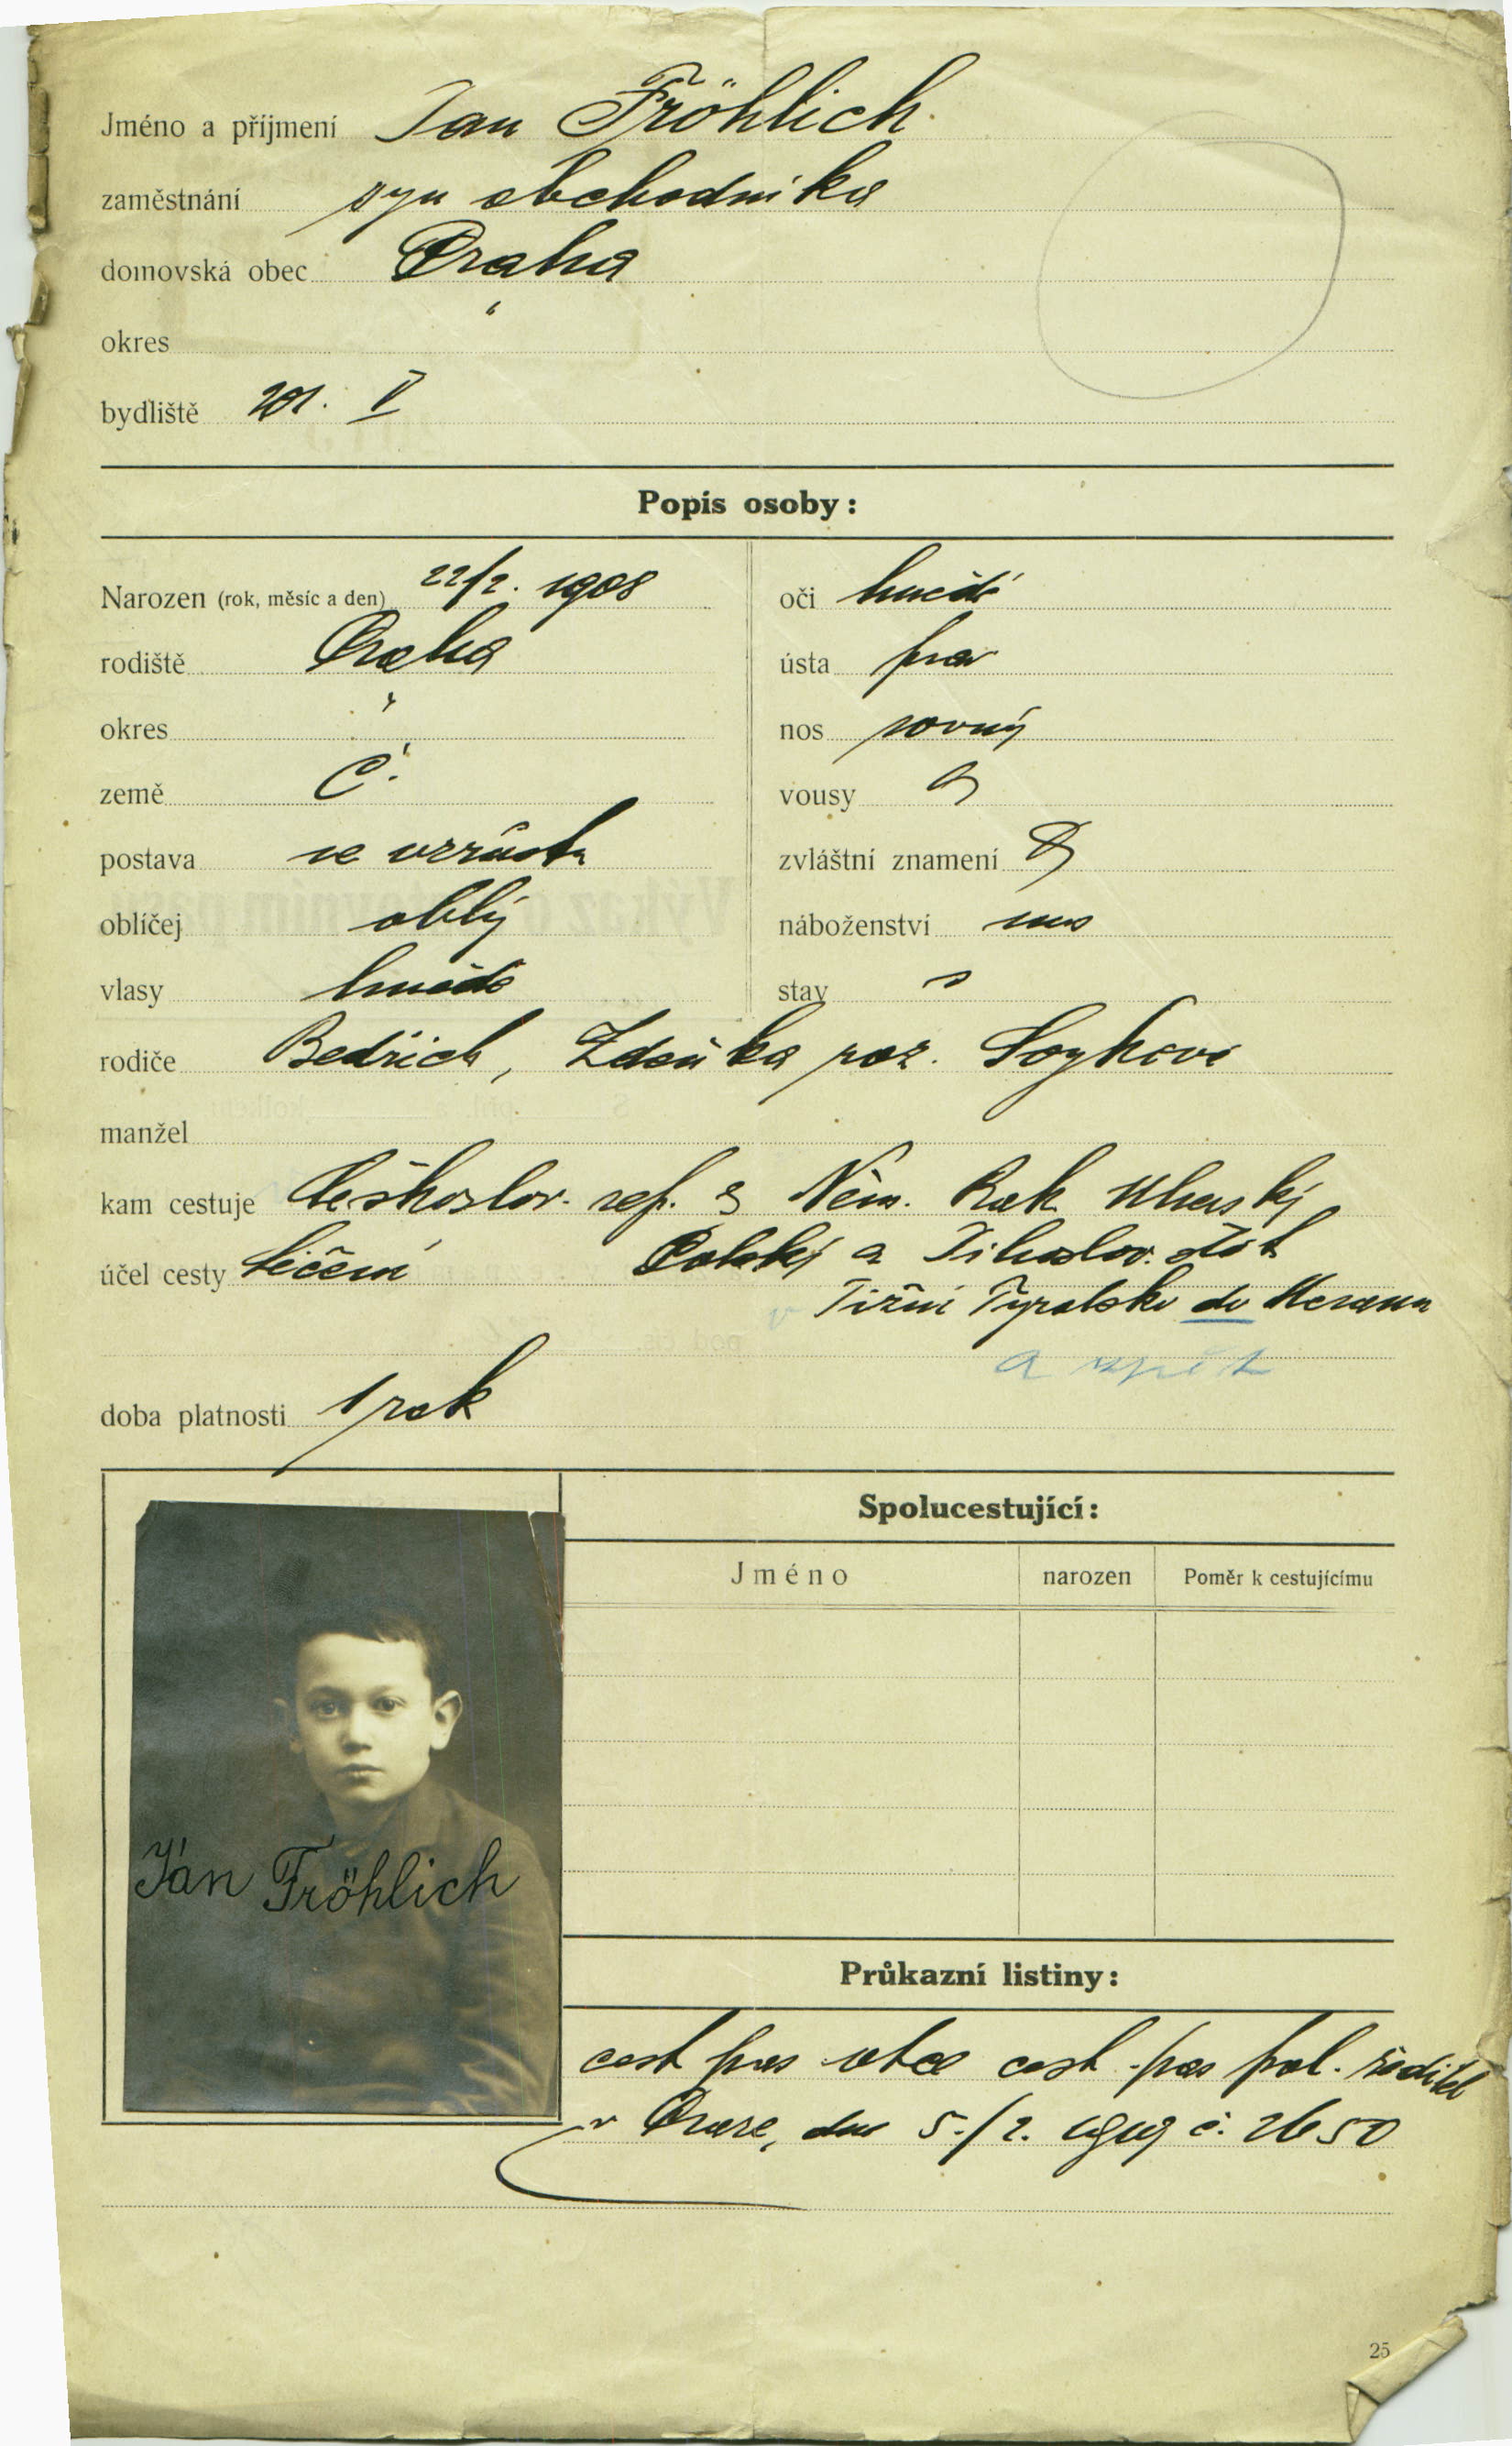 Jméno a příjmení Jan Fröhlich
zaměstnání syn obchodníka
domovská obec Praha
okres "
bydliště 201. V
Popis osoby:
Narozen (rok, měsíc a den) 22/2. 1908
rodiště Praha
okres "
země Č.
postava ve vzrůstu
oblíčej oblý
vlasy hnědé
oči hnědé
ústa prav
nos rovný
vousy
zvláštní znamení
náboženství
stav s
rodiče Bedřich, Zdeňka roz.
manžel
kam cestuje Českoslov. rep. Něm. Rak. Uherský
Polský a Jihoslov. stát
účel cesty léčení
Jižní Tyrolsko do Merana
a zpět
doba platnosti 1 rok
Spolucestující:
Jméno narozen Poměr k cestujícímu
Jan Fröhlich
Průkazní listiny:
cest. pas otce cest. pas pol. ředitel
v Praze, dne 5./2. 1919 č. 2650
25